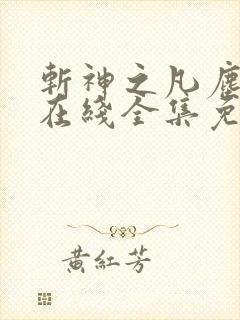 斬神之凡塵
在綫全集免
黃紅芳